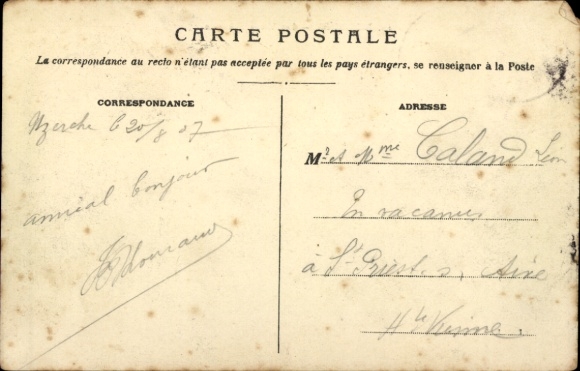 CARTE POSTALE
La correspondance au recto n'étant pas acceptée par tous les pays étrangers, se renseigner à la Poste
CORRESPONDANCE
Uzerche le 20/8 07
amical bonjour
ADRESSE
Mr et Mme Caland Léon
En vacances
à St Priest s/ Aixe
Hte Vienne.